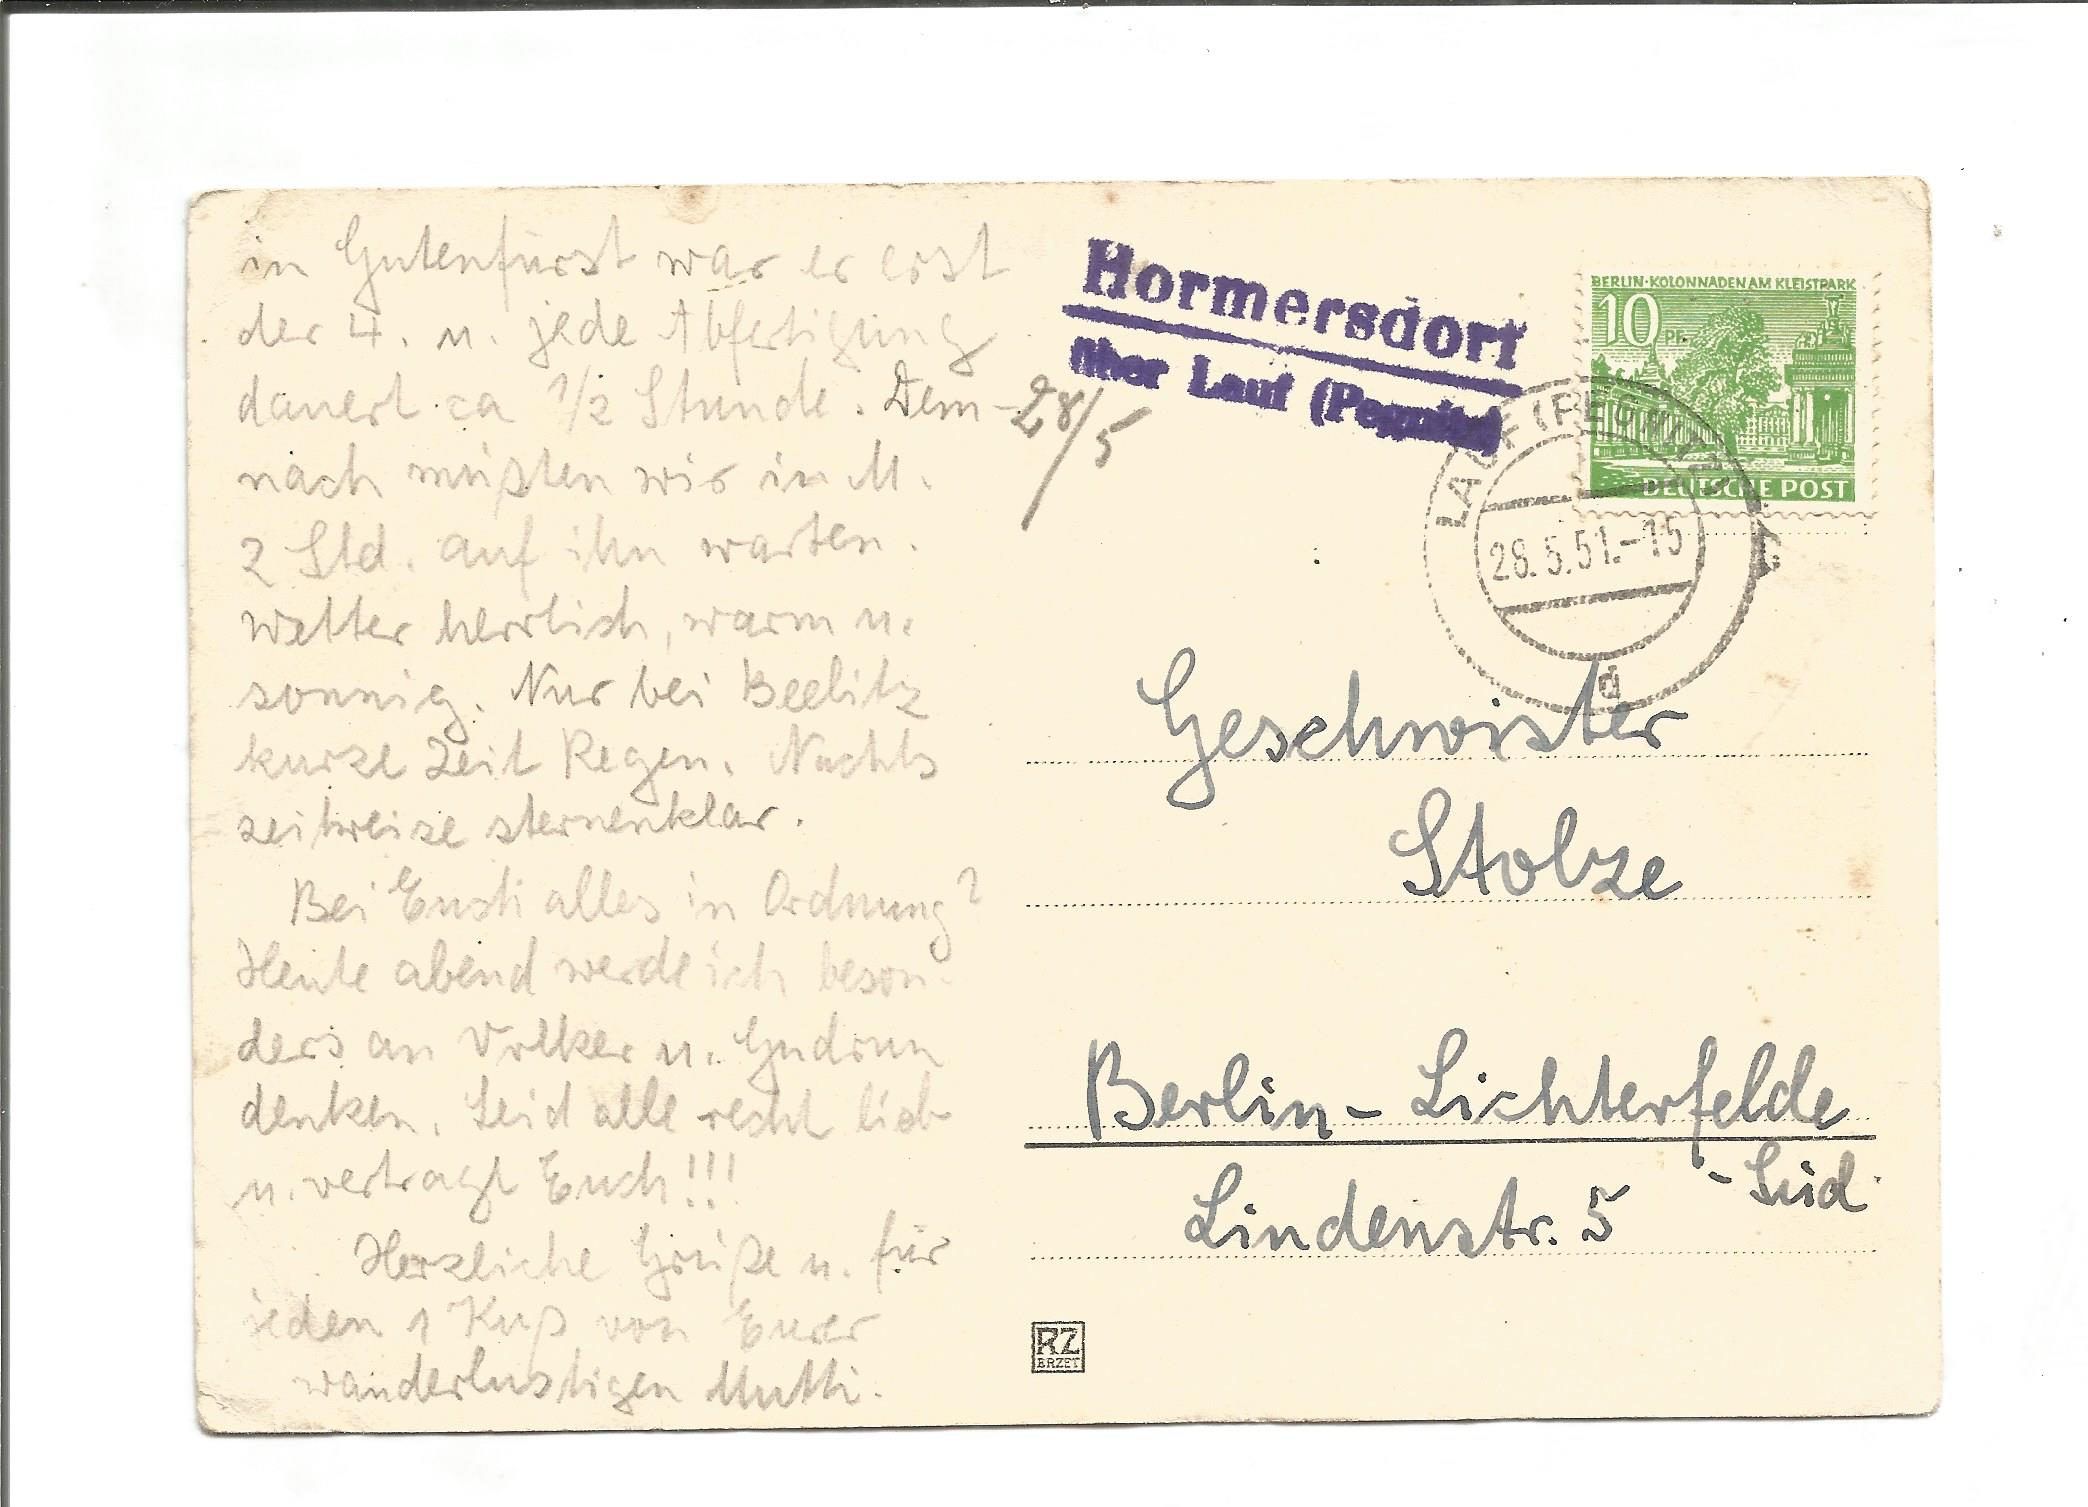 in Gutenfürst war er erst
der 4. u. jede Abfertigung
dauert ca 1/2 Stunde. Dem-
nach müßten wir in M.
2 Std. auf ihn warten.
Wetter herrlich, warm u.
sonnig. Nur bei Beelitz
kurze Zeit Regen. Nachts
zeitweise sternenklar.
Bei Euch alles in Ordnung?
Heute abend werde ich beson-
ders an Volker u. Gudrun
denken. Seid alle recht lieb
u. vertragt Euch!!!
Herzliche Grüße u. für
jeden 1 Kuß von Eurer
wanderlustigen Mutti.
28/5
Hormersdorf
über Lauf (Pegnitz)
BERLIN·KOLONNADEN AM KLEISTPARK
10 PF.
DEUTSCHE POST
LAUF (PEGNITZ)
28.5.51.-15
Geschwister
Stolze
Berlin-Lichterfelde
-Süd
Lindenstr. 5
RZ
BRZET